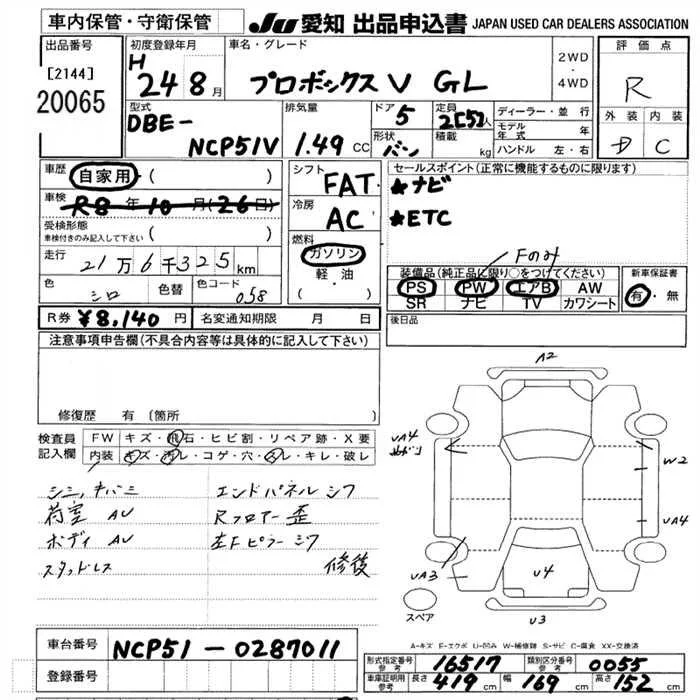 車内保管・守衛保管
JU 愛知 出品申込書 JAPAN USED CAR DEALERS ASSOCIATION
出品番号
[2144]
20065
初度登録年月
H 24 8月
車名・グレード
プロボックス V GL
2WD
・
4WD
評価点
R
外装 内装
D C
型式
DBE-
NCP51V
排気量
1.49 CC
ドア 5
形状 バン
定員 2[5]人
積載 kg
ディーラー・並行
モデル年式 年
ハンドル 左・右
車歴 自家用 ( )
車検 R8年10月(26日)
受検形態
車検付きのみ記入して下さい ( )
走行 21万6千325km
色 シロ 色替 色コード 058
シフト FAT
冷房 AC
燃料
ガソリン
軽・油
セールスポイント(正常に機能するものに限ります)
★ナビ
★ETC
Fのみ
装備品(純正品に限り○をつけてください)
PS PW エアB AW
SR ナビ TV カワシート
新車保証書
有・無
R券 ¥8,140円 名変通知期限 月 日
後日品
注意事項申告欄(不具合内容等は具体的に記入して下さい)
修復歴 有 (箇所
検査員記入欄
FW キズ・飛石・ヒビ割・リペア跡・X要
内装 キズ・汚レ・コゲ・穴・スレ・キレ・破レ
シミ,キバミ エンドパネルシフ
荷室 AU Rフロアー歪
ボディ AU 左Fピラーシフ
スタッドレス 修後
A2
UA4
W2
UA4
UA3
U4
U3
スペア
A-キズ E-エクボ U-凹み W-補修跡 S-サビ C-腐食 XX-交換済
車台番号 NCP51-0287011
登録番号
形式指定番号 参考 16517 類別区分番号 参考 0055
車庫証明用 参考 長さ 419cm 幅 169cm 高さ 152cm